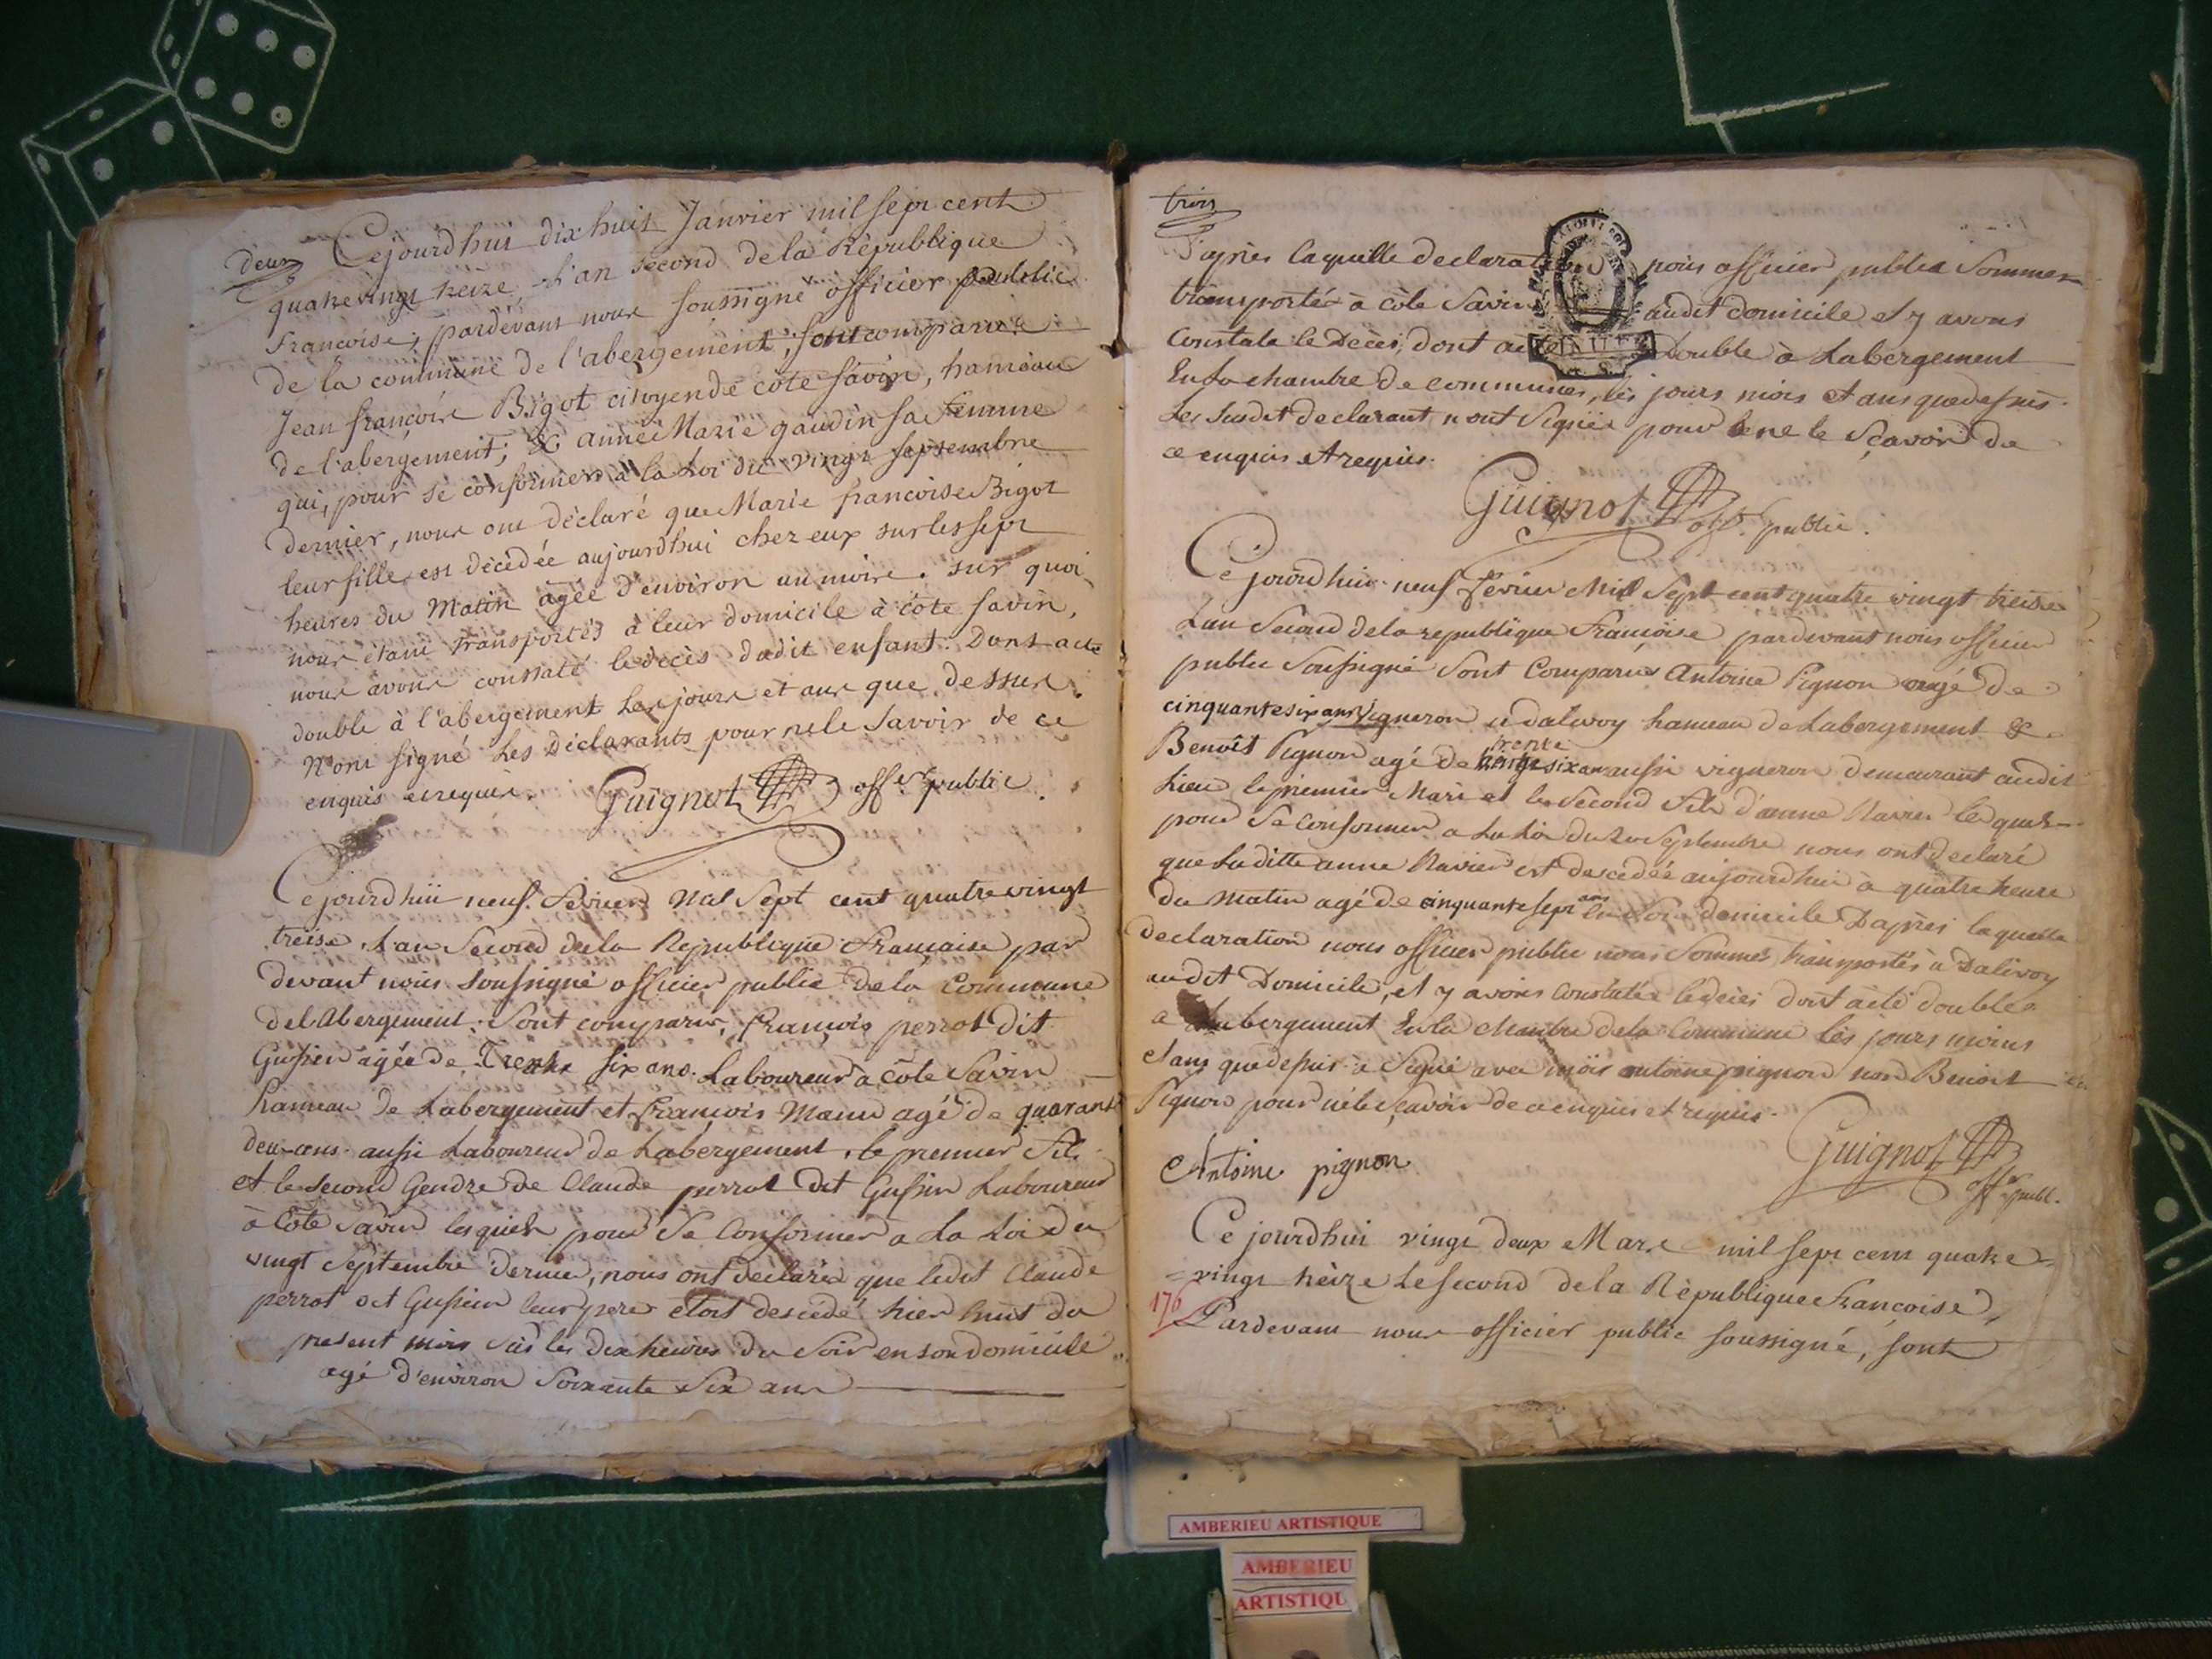 deux
Cejourdhui dix huit Janvier mil sept cent
quatrevingt treize L'an second de la République
francoise; pardevant nous soussigné officier public
de la commune de l'abergement, sont comparus
Jean françois Bigot citoyen de côte savin, hameau
de l'abergement; & anne Marie gaudin sa femme
qui, pour se conformer à la Loi du vingt septembre
dernier, nous ont déclaré que Marie francoise Bigot
leur fille est décédée aujourdhui chez eux sur les sept
heures du Matin agée d'environ un mois. sur quoi
nous étant transportés à leur domicile à côte savin,
nous avons constaté le decès dudit enfant. Dont acte
double à l'abergement Les jours et ans que dessus.
N'ont signé Les Déclarants pour ne le savoir de ce
enquis et requis.
Guignot offer. public.
Cejourdhui neuf. fevrier Mil Sept cent quatre vingt
treise L'an Second de la Republique Francaise par
devant nous soussigné officier public de la Commune
de l'Abergement; Sont comparus, françois perrot dit
Gussien agée de Trente six ans. Laboureur a côte Savin
hameau de Labergement et francois Manu agé de quarante
deux ans aussi Laboureur de Labergement, le premier fils
et le second Gendre de Claude perrot dit Gussien Laboureur
à Côte Savin lesquels pour Se Conformer a La Loi du
vingt Septembre dernier, nous ont declarés que ledit Claude
perrot dit Gussien leur pere etoit descedé hier huit du
présent mois sur les dix heures du Soir en son domicile
agé d'environ Soixante Six ans
trois
D'après laquelle declaration nous officier public Sommes
transportés à côte Savin audit domicile et y avons
Constate le Décès, dont acte Double à Labergement
En la chambre de commune, les jours mois et ans que dessus.
Les Susdit declarant n'ont Signés pour ne le Sçavoir de
ce enquis et requis.
Guignot off. public.
Cejourdhui neuf fevrier Mil Sept cent quatre vingt treise
L'an Second de la republique Françoise pardevant nous officier
public Soussigné Sont Comparus Antoine Pignon agé de
cinquante six ans Vigneron à dalivoy hameau de Labergement &
Benoît Pignon agé de trente six ans aussi vigneron demeurant audit
Lieu le premier Mari et le Second fils d'anne Ravier lesquels
pour Se Conformer a La Loi du 20 Septembre nous ont declaré
que Laditte anne Ravier est descedée aujourdhui à quatre heure
du matin agé de cinquante sept ans en Son domicile D'après laquelle
declaration nous officier public nous Sommes transportés a Dalivoy
audit Domicile, et y avons Constatés le décès dont acte double
a Labergement En la Chambre de la Commune les jours moins
et ans que dessus à Signé avec nous antoine pignon non Benoit
Pignon pour ne le Sçavoir de ce enquis et requis.
Antoine pignon
Guignot
offer. publ.
Cejourdhui vingt deux Mars mil sept cent quatre=
=vingt treize Le second de la République francoise,
176
Pardevant nous officier public soussigné, sont
AMBERIEU ARTISTIQUE
AMBERIEU
ARTISTIQU